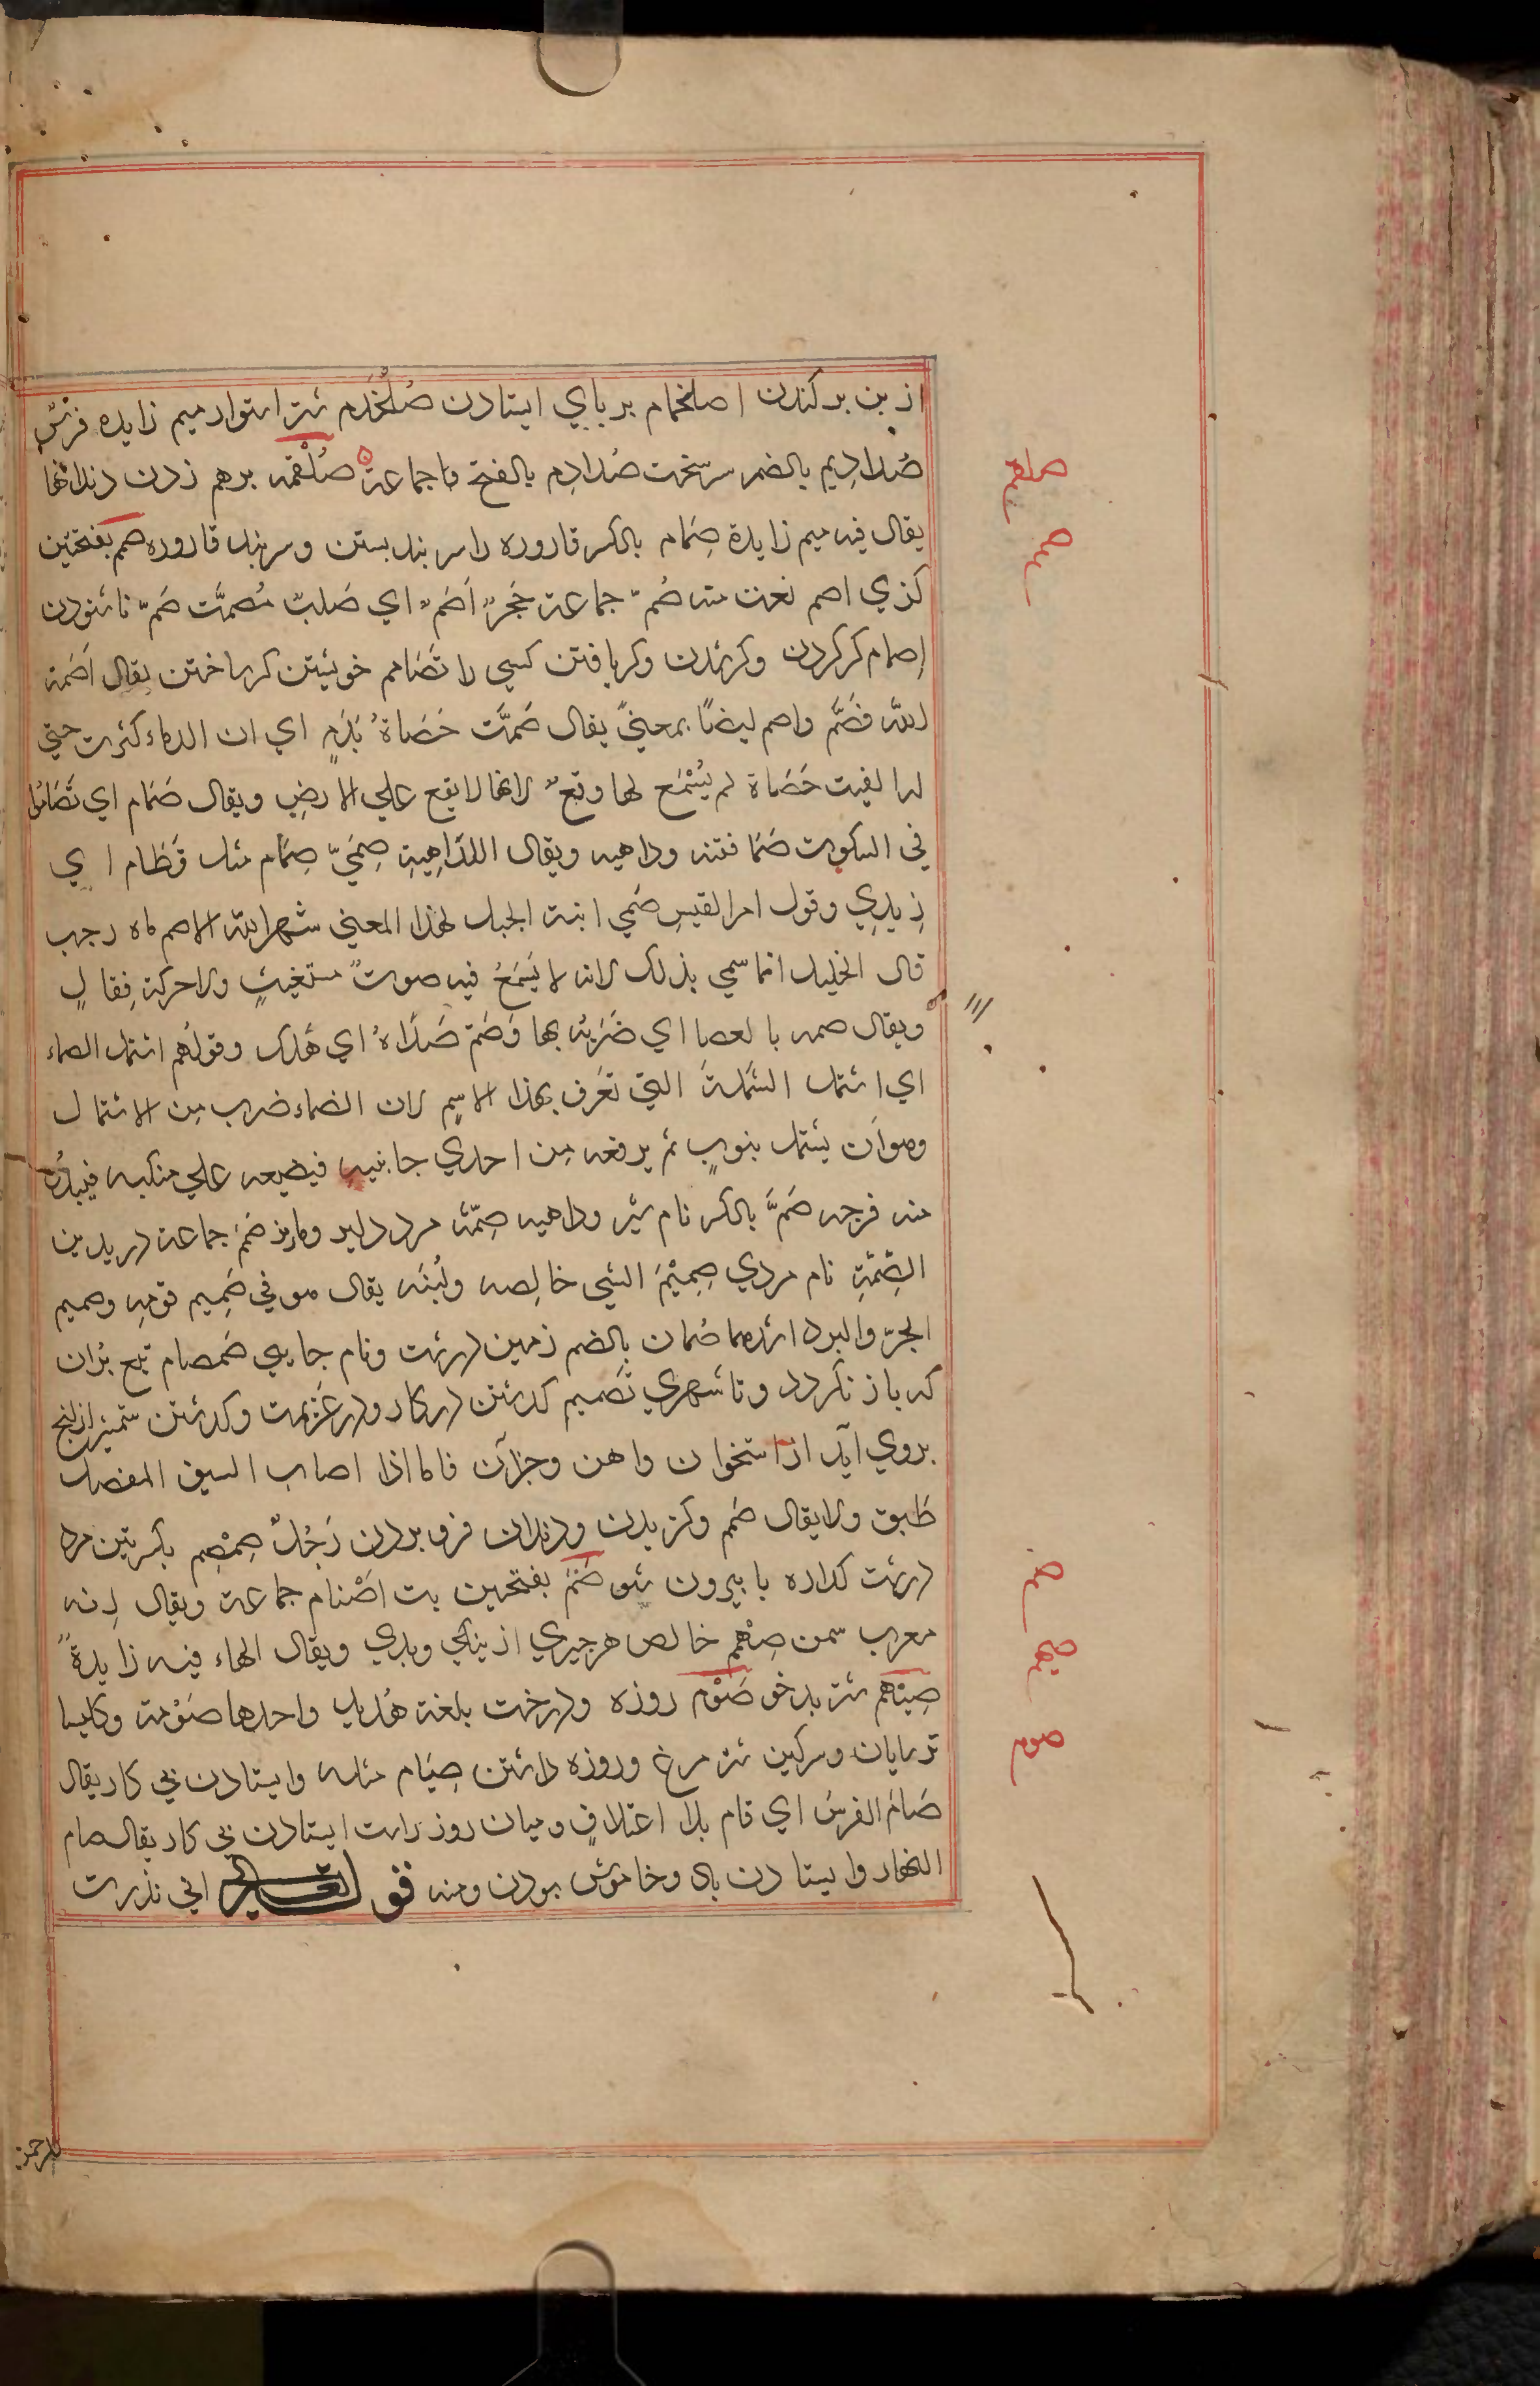 از بن بر کندن اصلخمام بر باي ايستادن صُلَخْدَم شتر استوار ميم زايده فرَسٌ
صُلادِيم بالضم سر سخت صَلادِم بالفتح جماعة صَلْقَمه برهم زدن دندانها
يقال فيه ميم زايدة صِمَام بالكسر قاروره را سر بند بستن وسر بند قاروره صمم بفتحتين
كري اصم نعت منه صُمّ جماعة حَجَرٌ اَصَمّ اي صَلبٌ مُصمَّت صَمّ ناشنودن
اِصمام كر كردن وكر شدن وكر يافتن كسي را تَصَامم خويشتن كر ساختن يقال اَصَمّه
الله فصَمَّ واصم ايضًا بمعنيً يقال صَمَّت حَصَاةٌ بِدَمٍ اي ان الدماء كثرت حتي
لو القيت حَصَاة لم يُسْمَع لها وقع لانها لا يقع علي الارضِ ويقال صَمَام اي تَصَامُوا
في السكوت صَمّا فتنه وداهيه ويقال للدَاهِيةِ صِمّيّ صَمَام مثل قَطَام اي
زِيدِي وقول امرا القيس صَمّي ابنة الجبل لهذا المعني شهر الله الاصم ماه رجب
قال الخليل انما سمي بذلك لانه لا يَسمَعُ فيه صوتُ مستغيثٍ ولا حركة قِتَالٍ
ويقال صمه بالعصا اي ضَرَبَه بها وَصَمّ صَدَاهُ اي هَلَك وقولهُم اشتمل الصماء
اي اشتمل الشملةَ التي تعَرف بهذا الاسِم لان الصَماء ضرب مِن الاشتمال
وهو اَن يشتمل بثوبٍ ثم يرفعه مِن احدي جانبيهِ فيضعه علي منكبه فيبدُو
منه فرجه صِمّ بالكسر نام شير وداهيه صِمّة مرد دلير ومار نر صِمَم جماعة دريد بن
الصِمّةِ نام مردي صِمِيْمُ الشي خالِصه ولُبّه يقال هو في صَمِيم قومِه وصميم
الحرّ والبرد اشدهما صُمان بالضم زمين درشت ونام جايي صَمصام تيغ بُرّان
كه باز نكردد وتا شهري تَصميم كذشتن در كار ودر عَزيمت وكذشتن شمشير از انچ
بروي آيد از استخوان واهن وجزآن فاما اذا اصاب السيف المفصل
طَبق ولا يقال صَمم وكزيدن ودندان فرو بردن رَجُلٌ صِمْصِم بكسرتين مرد
درشت كداره يا بيرون شو صَنَم بفتحتين بت اَصْنام جماعة ويقال اِنه
معرب شمن صِهْمٌ خالص هر چيزي از نيكي وبدي ويقال الهاء فيه زايدةٌ
صِيْهَم شتر بد خو صَوْم روزه ودرخت بلغة هُذيل واحدها صَوْمة وكليسا
ترسايان وسركين شتر مرغ وروزه داشتن صِيَام مثله وايستادن بي كار يقال
صَامَ الفرسُ اي قام بلا اعتلافٍ وميان روز راست ايستادن بي كار يقال صام
النهار وايستادن باد وخاموش بودن ومنه قوله تعالي اني نذرت
صلقم
صمم
صنم
صهم
صوم
للرحمن